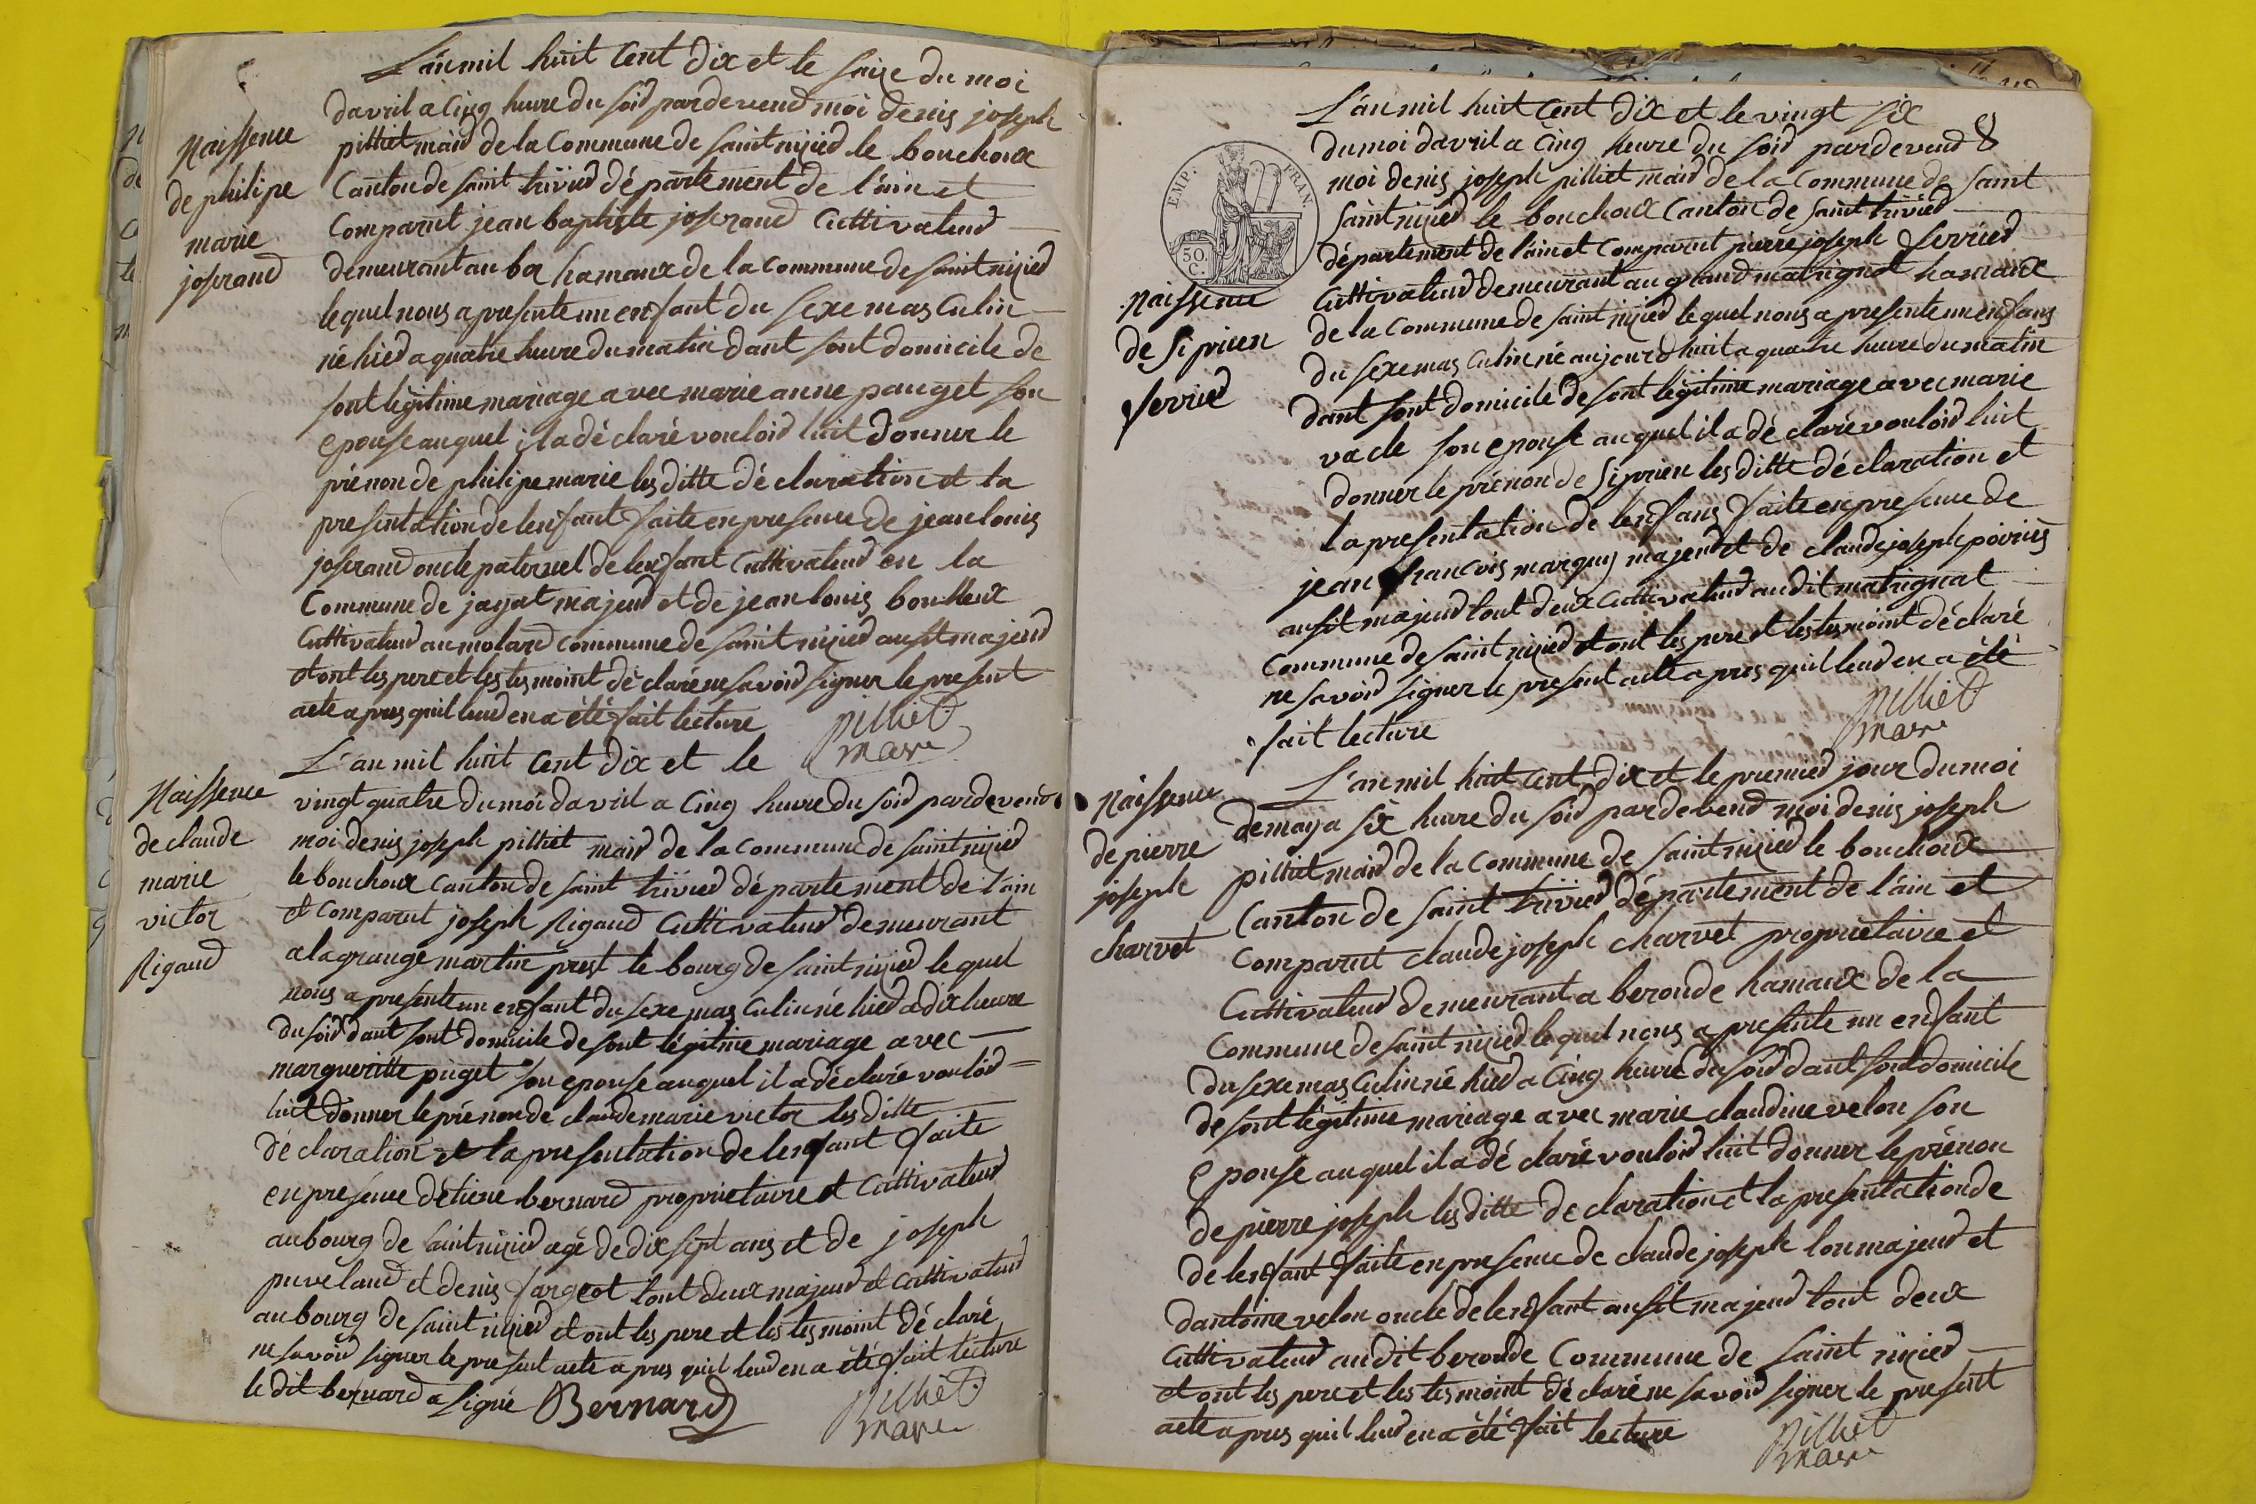 L'an mil huit cent dix et le saize du moi
davril a cinq heure du soid pardevend moi denis joseph
pilliet maid de la commune de saint nizied le bouchoux
Canton de saint trivied département de l'ain et
Comparut jean baptiste joserand Cultivateud
demeurant au box hamaux de la commune de saint nizied
lequel nous a presente un enfant du sexe masculin
né hied a quatre heure du matin dant sont domicile de
sont légitime mariage avec marie anne pauget son
epouse auquel il a déclaré vouloid luit donner le
prénon de philipe marie les ditte déclaration et la
presentation de lenfant faite en presence de jean louis
joserand oncle paternel de lenfant Cultivateud en la
Commune de jayat majeud et de jean louis boulleux
Cultivateud au molard commune de saint nizied ausit majeud
et ont les pere et les tesmoint déclaré ne savoid signer le present
acte apres quil leud en a été fait lecture
pilliet
maire
Naissence
de philipe
marie
joserand
L'an mil huit cent dix et le
vingt quatre du moi davril a cinq heure du soid pardevend
moi denis joseph pilliet maid de la commune de saint nizied
le bouchoux canton de saint trivied département de l'ain
et comparut joseph Rigaud Cultivateud demeurant
a la grange martin prest le bourg de saint nizied lequel
nous a presente un enfant du sexe masculin né hied a dix heure
du soid dant sont domicile de sont légitime mariage avec
margueritte puget son epouse auquel il a déclaré vouloid
luit donner le prénon de claude marie victor les ditte
déclaration et la presentation de lenfant faite
en presence détiene bernard proprietaire et Cultivateud
au bourg de saint nizied agé de dix sept ans et de joseph
puveland et denis fargeot tout deux majeud et Cultivateud
au bourg de saint nizied et ont les pere et les tesmoint déclaré
ne savoid signer le present acte apres quil leud en a été fait lecture
le dit bernard a signé Bernard
pilliet
maire
Naissence
de claude
marie
victor
Rigaud
L'an mil huit cent dix et le vingt six
du moi davril a cinq heure du soid pardevend
moi denis joseph pilliet maid de la commune de saint
saint nizied le bouchoux Canton de saint trivied
département de l'ain et comparut pierre joseph ferried
Cultivateud demeurant au grand matrignat hamaux
de la commune de saint nizied lequel nous a presente un enfans
du sexe masculin né aujourdhuit a quatre heure du matin
dant sont domicile de sont légitime mariage avec marie
vacle son epouse auquel il a déclaré vouloid luit
donner le prénon de siprien les ditte déclaration et
la presentation de lenfans faite en presence de
jean francois marquis majeud et de claude joseph poirier
ausit majeud tout deux Cultivateud audit matrignat
commune de saint nizied et ont les pere et les tesmoint déclaré
ne savoid signer le present acte apres quil leud en a été
fait lecture
pilliet
maire
EMP. FRAN.
50.
C.
Naissence
de siprien
ferried
L'an mil huit cent dix et le premied jour du moi
de may a six heure du soid pardevend moi denis joseph
pilliet maid de la commune de saint nizied le bouchoux
Canton de saint trivied département de l'ain et
Comparut claude joseph charvet proprietaire et
Cultivateud demeurant a beronde hamaux de la
Commune de saint nizied lequel nous a presente un enfant
du sexe masculin né hied a cinq heure du soid dant sont domicile
de sont légitime mariage avec marie claudine velon son
epouse auquel il a déclaré vouloid luit donner le prénon
de pierre joseph les ditte declaration et la presentation de
de lenfant faite en presence de claude joseph lon majeud et
dantoine velon oncle de lenfant ausit majeud tout deux
Cultivateud audit beronde Commune de saint nizied
et ont les pere et les tesmoint déclaré ne savoid signer le present
acte apres quil leud en a été fait lecture
pilliet
maire
Naissence
de pierre
joseph
charvet